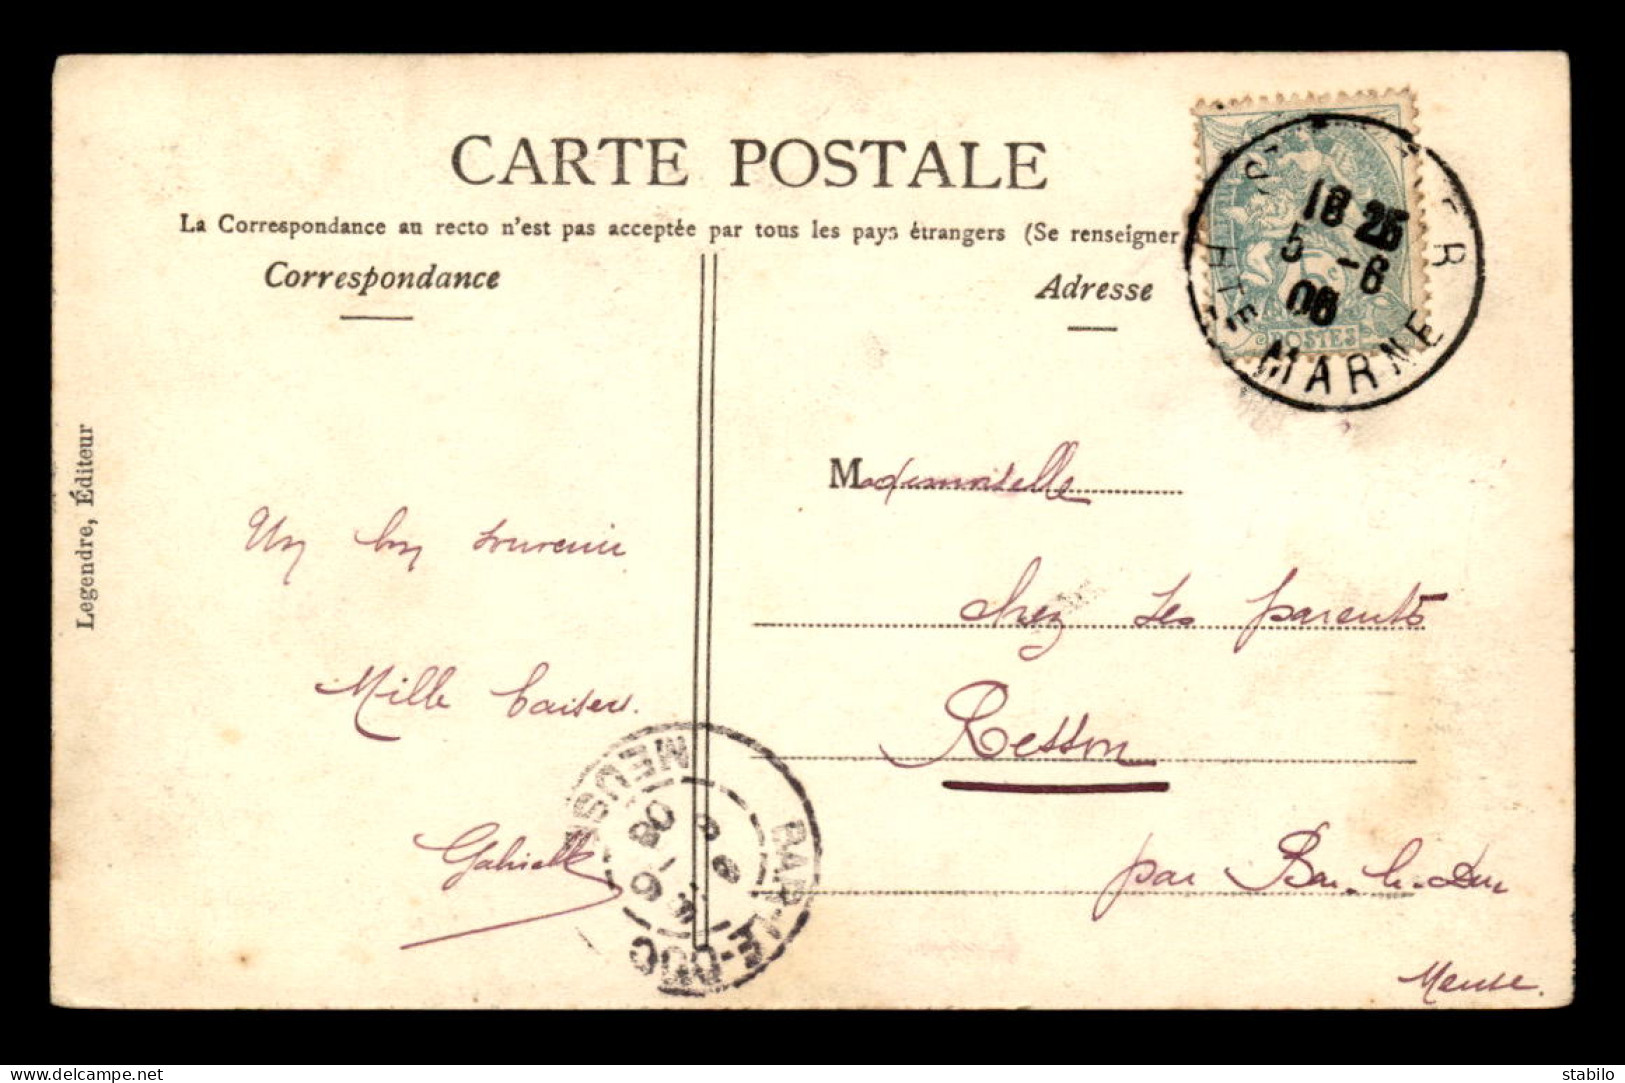 CARTE POSTALE
La Correspondance au recto n'est pas acceptée par tous les pays étrangers (Se renseigner
Correspondance
Adresse
18 25
5 -6
HTE MARNE
POSTES
Legendre, Éditeur
Un bon souvenir
Mille baisers.
Gabrielle
Mademoiselle
chez ses parents
Resson
par Bar-le-Duc
Meuse.
BAR-LE-DUC
MEUSE
www.delcampe.net
stabilo